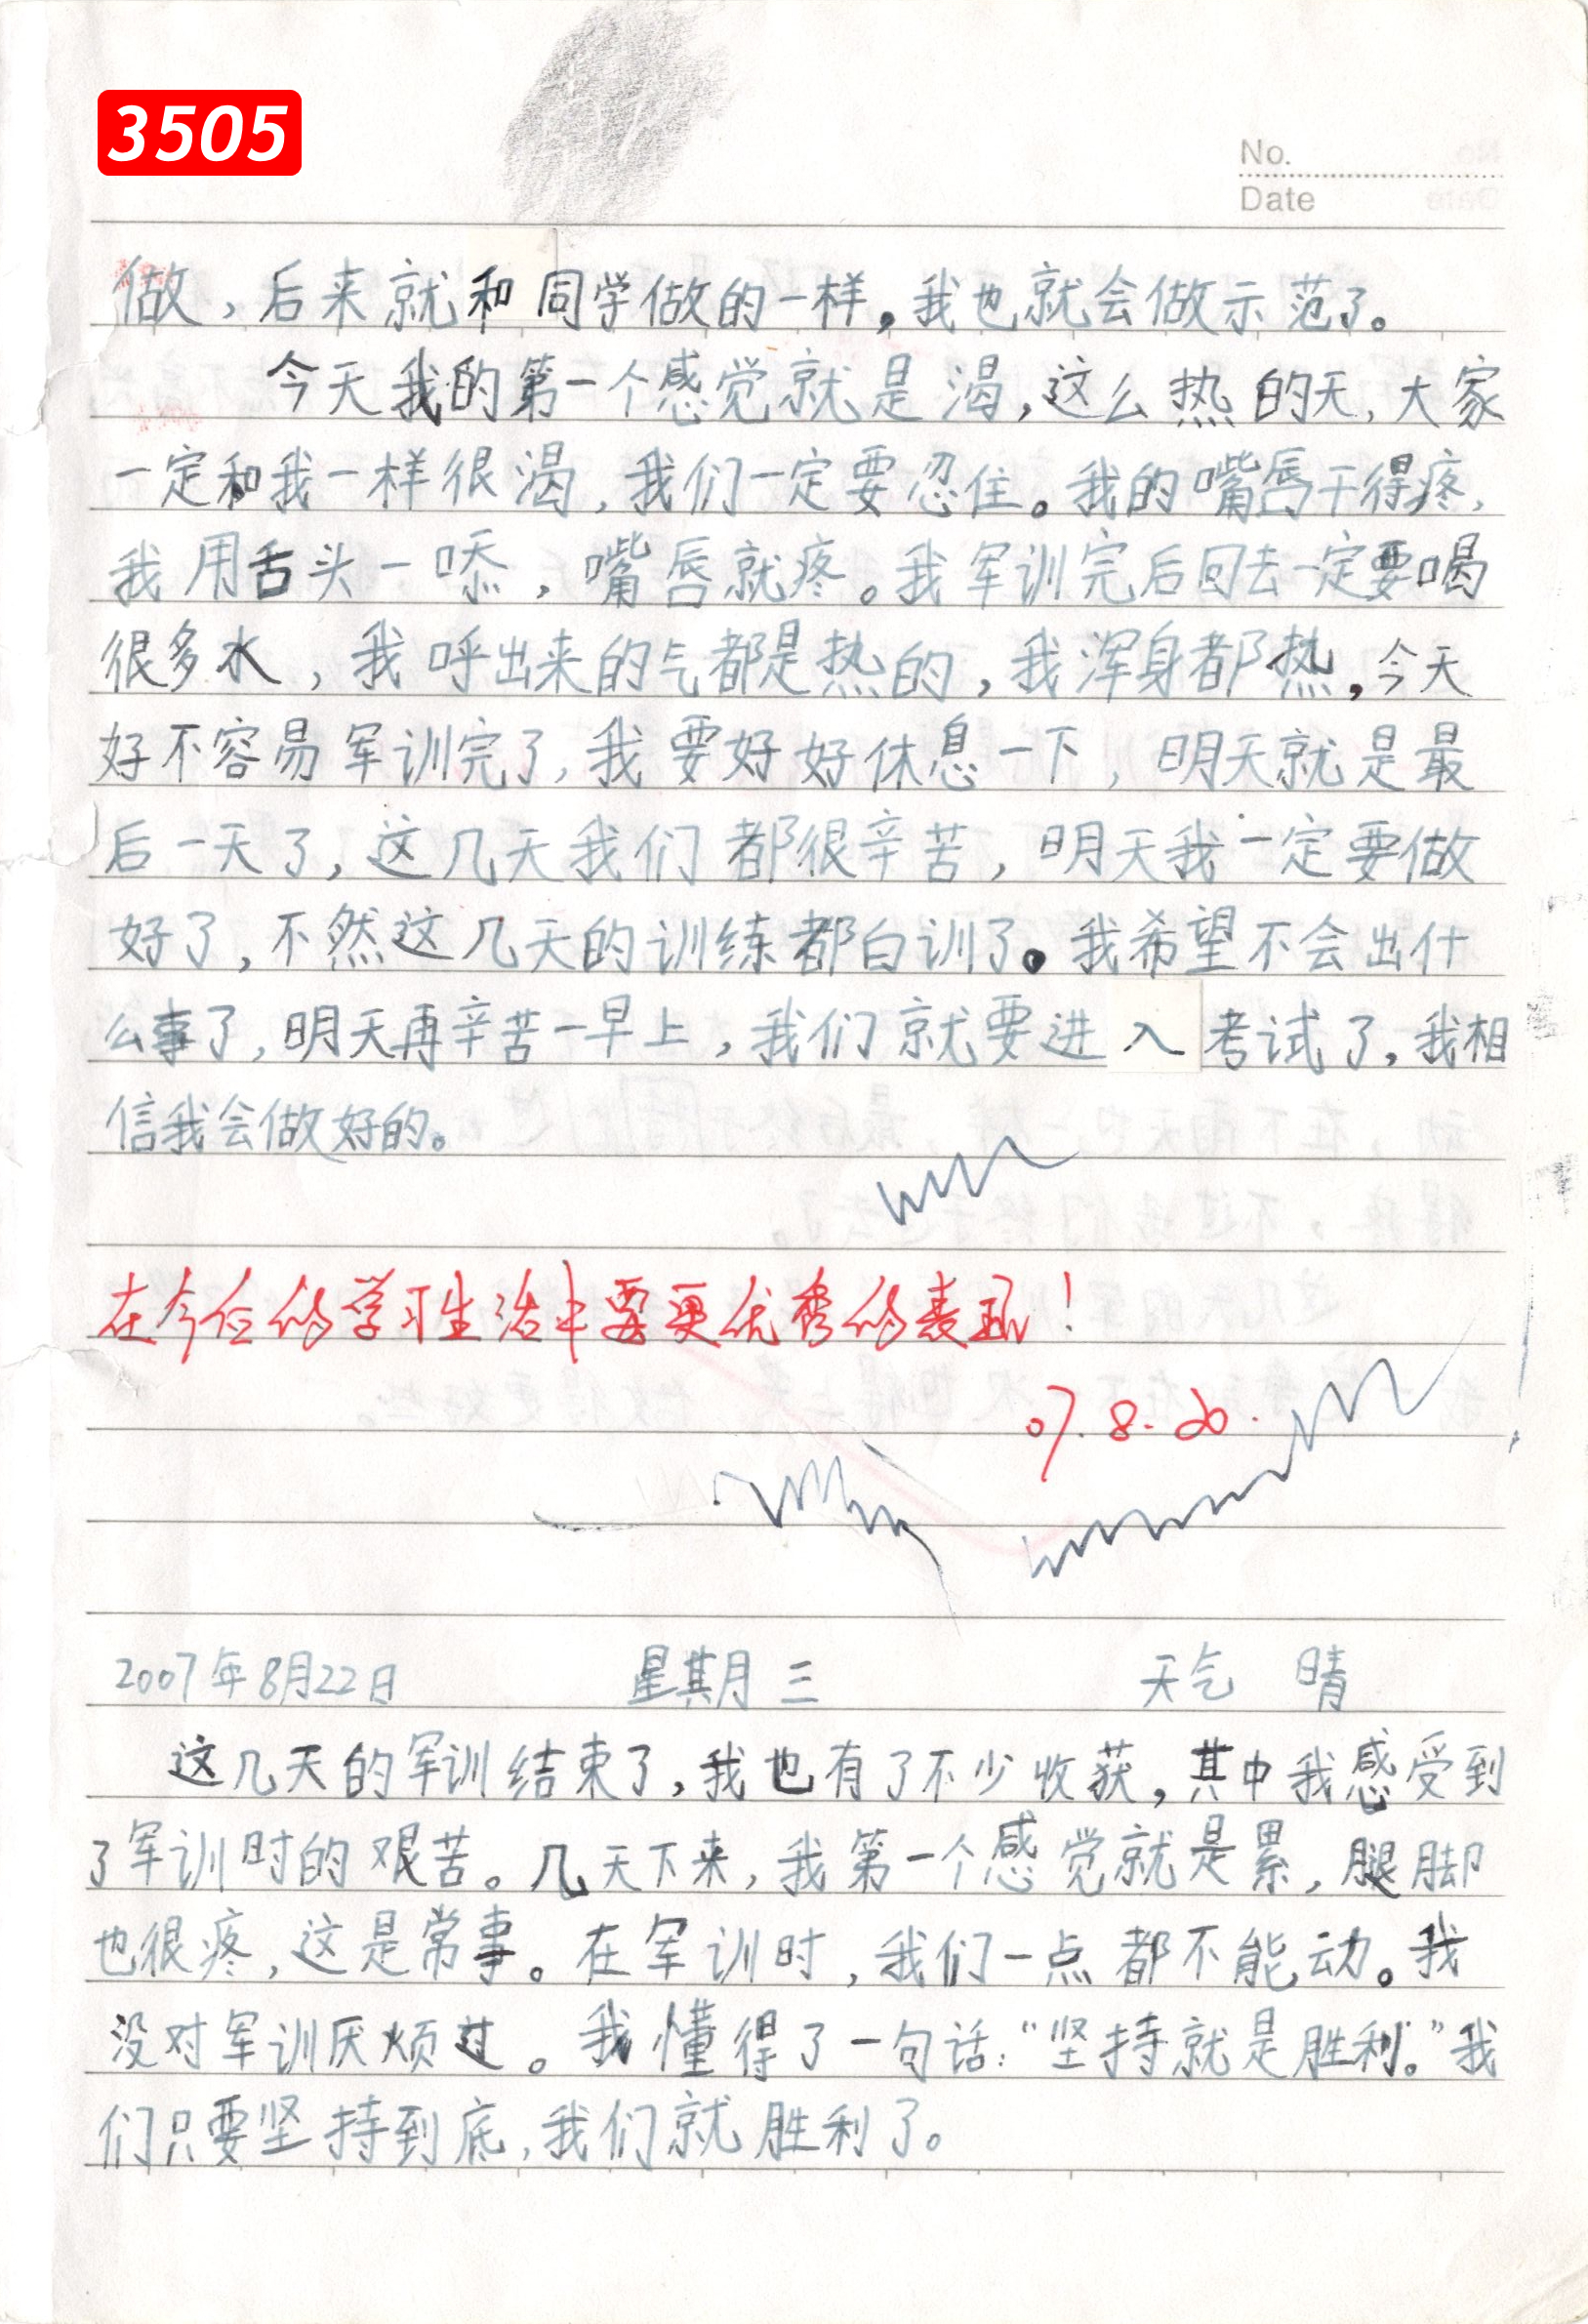 3505
No.
Date
做，后来就和同学做的一样，我也就会做示范了。
今天我的第一个感觉就是渴，这么热的天，大家
一定和我一样很渴，我们一定要忍住。我的嘴唇干得疼，
我用舌头一㖭，嘴唇就疼。我军训完后回去一定要喝
很多水，我呼出来的气都是热的，我浑身都热，今天
好不容易军训完了，我要好好休息一下，明天就是最
后一天了，这几天我们都很辛苦，明天我一定要做
好了，不然这几天的训练都白训了。我希望不会出什
么事了，明天再辛苦一早上，我们就要进入考试了，我相
信我会做好的。
在今后的学习生活中要更优秀的表现！
07.8.20.
2007年8月22日 星期三 天气 晴
这几天的军训结束了，我也有了不少收获，其中我感受到
了军训时的艰苦。几天下来，我第一个感觉就是累，腿脚
也很疼，这是常事。在军训时，我们一点都不能动。我
没对军训厌烦过。我懂得了一句话：“坚持就是胜利。”我
们只要坚持到底，我们就胜利了。